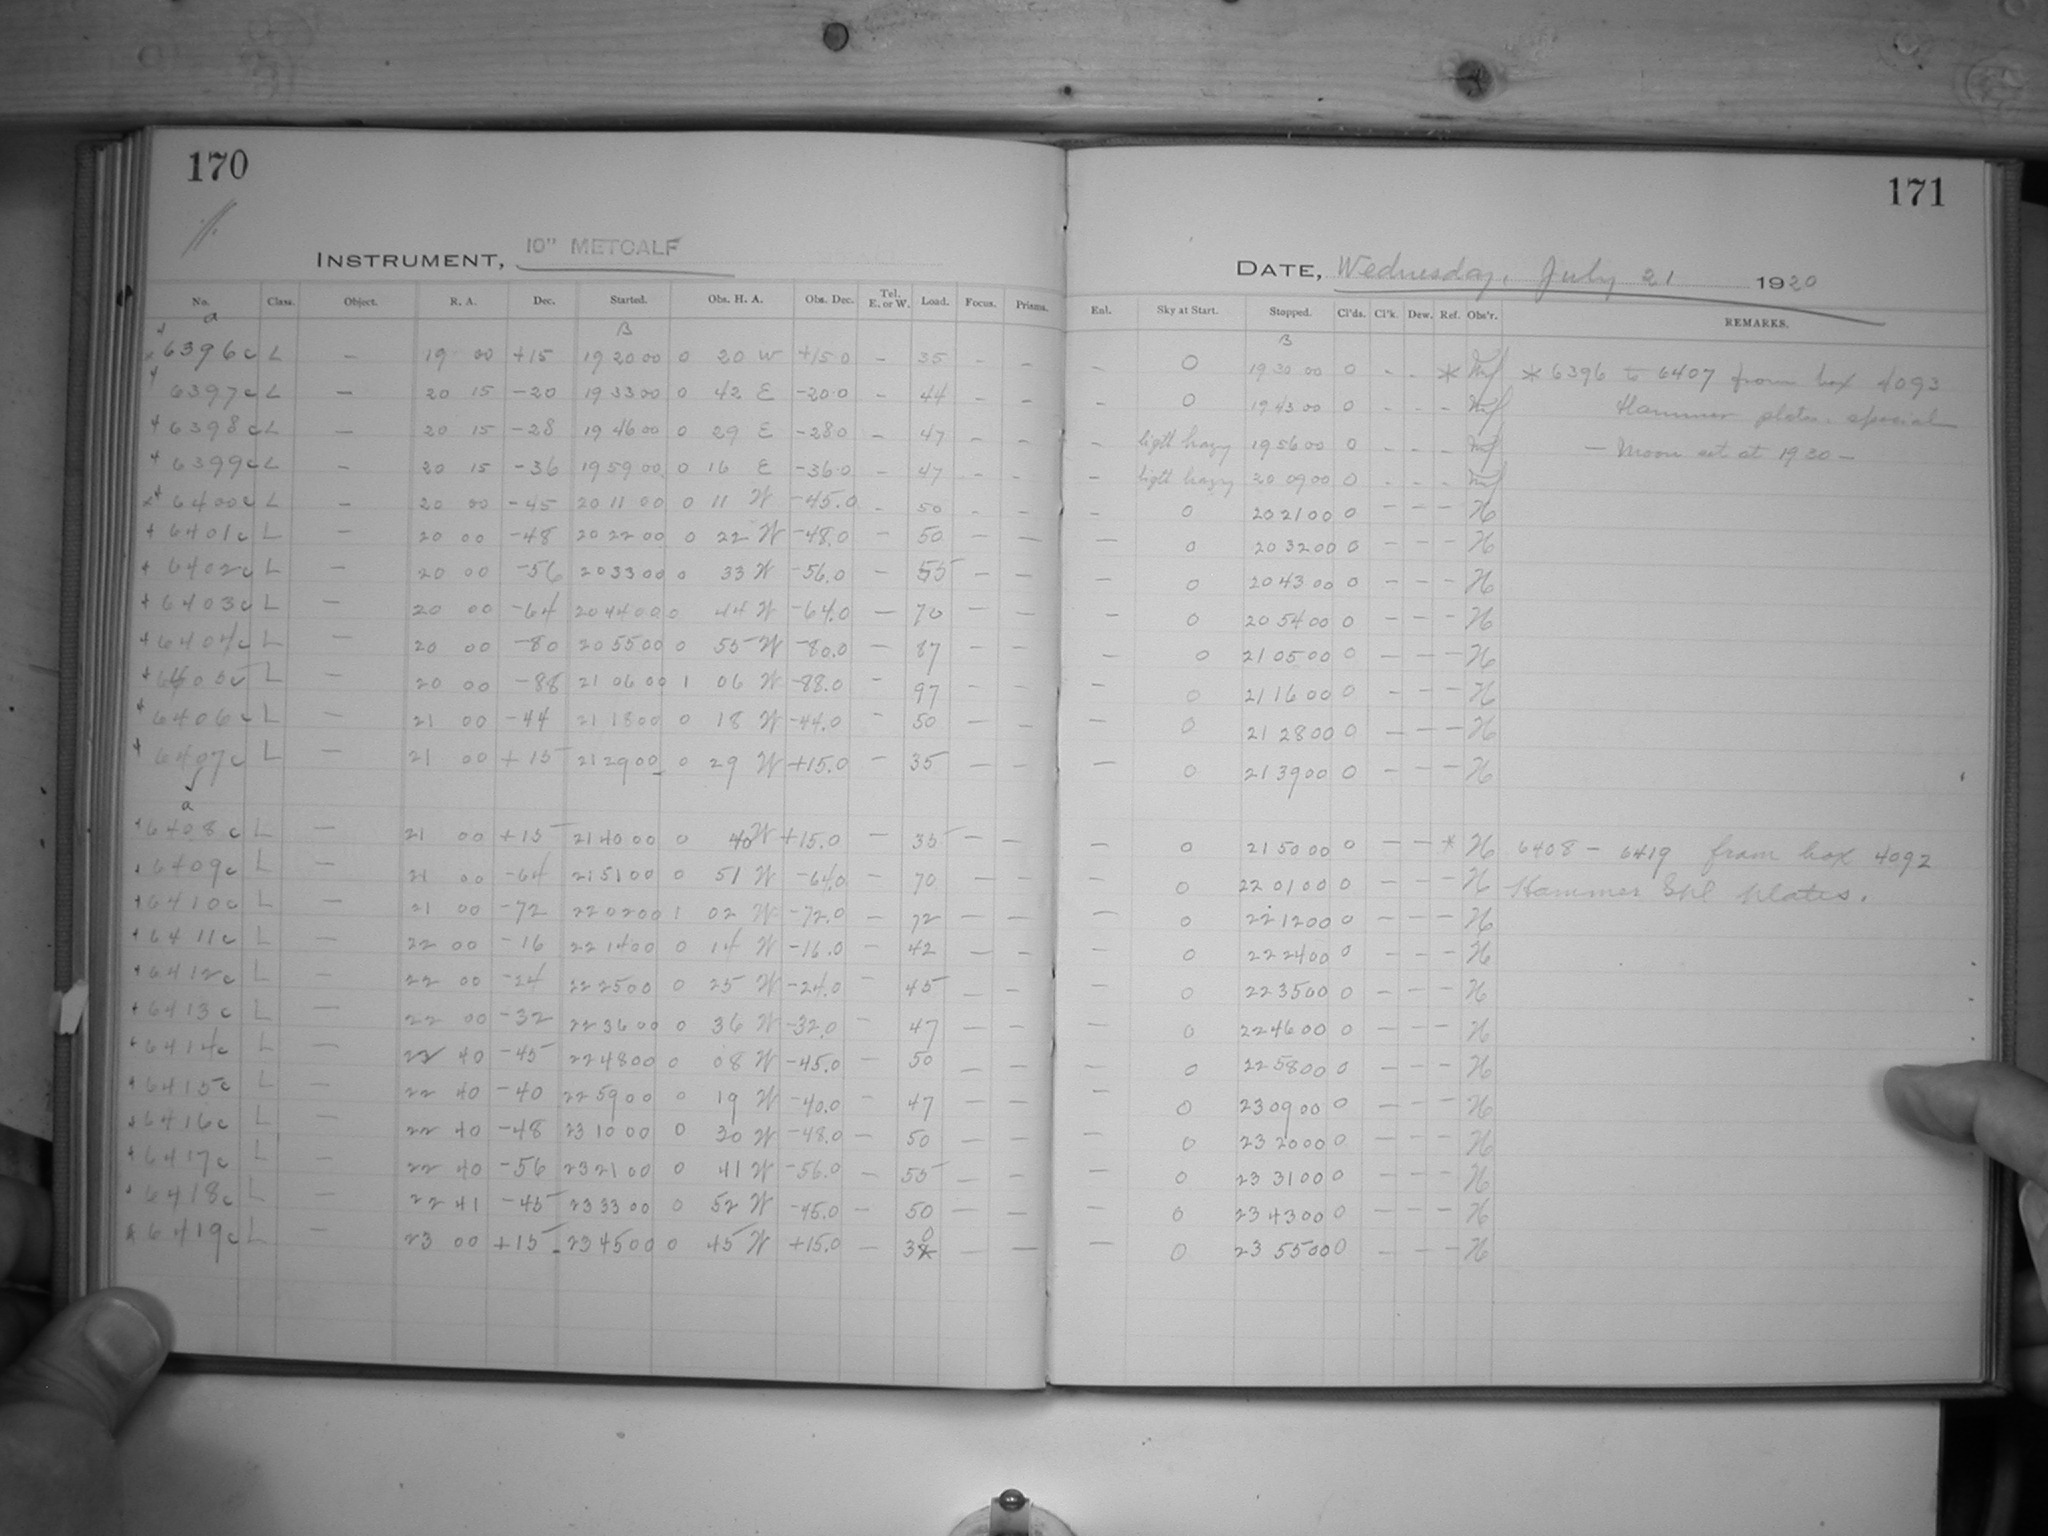 170
171
INSTRUMENT, 10" METCALF
DATE, Wednesday, July 21 1920
No. Class. Object. R. A. Dec. Started. Obs. H. A. Obs. Dec. Tel. E. or W. Load. Focus. Prisms. Enl. Sky at Start. Stopped. Cl'ds. Cl'k. Dew. Ref. Obs'r. REMARKS.
a B B
6396c L — 19 00 +15 19 20 00 0 20 W +15 0 - 35 - - - 0 19 30 00 0 - - * * 6396 to 6407 from box 4093
6397c L — 20 15 -20 19 33 00 0 42 E -20.0 - 44 - - - 0 19 43 00 0 - - - Hammer plates. special
6398c L — 20 15 -28 19 46 00 0 29 E -28.0 - 47 - - - light hazy 19 56 00 0 - - - — Moon set at 19 30 —
6399c L — 20 15 -36 19 59 00 0 16 E -36.0 - 47 - - - light hazy 20 09 00 0 - - -
6400c L — 20 00 -45 20 11 00 0 11 W -45.0 - 50 - - - 0 20 21 00 0 - - - H
6401c L — 20 00 -48 20 22 00 0 22 W -48.0 - 50 - - - 0 20 32 00 0 - - - H
6402c L — 20 00 -56 20 33 00 0 33 W -56.0 - 55 - - - 0 20 43 00 0 - - - H
6403c L — 20 00 -64 20 44 00 0 44 W -64.0 - 70 - - - 0 20 54 00 0 - - - H
6404c L — 20 00 -80 20 55 00 0 55 W -80.0 - 87 - - - 0 21 05 00 0 - - - H
6405c L — 20 00 -88 21 06 00 1 06 W -88.0 - 97 - - - 0 21 16 00 0 - - - H
6406c L — 21 00 -44 21 18 00 0 18 W -44.0 - 50 - - - 0 21 28 00 0 - - - H
6407c L — 21 00 +15 21 29 00 0 29 W +15.0 - 35 - - - 0 21 39 00 0 - - - H
a
6408c L — 21 00 +15 21 40 00 0 40 W +15.0 - 35 - - - 0 21 50 00 0 - - * H 6408 - 6419 from box 4092
6409c L — 21 00 -64 21 51 00 0 51 W -64.0 - 70 - - - 0 22 01 00 0 - - - H Hammer Spl plates.
6410c L — 21 00 -72 22 02 00 1 02 W -72.0 - 72 - - - 0 22 12 00 0 - - - H
6411c L — 22 00 -16 22 14 00 0 14 W -16.0 - 42 - - - 0 22 24 00 0 - - - H
6412c L — 22 00 -24 22 25 00 0 25 W -24.0 - 45 - - - 0 22 35 00 0 - - - H
6413c L — 22 00 -32 22 36 00 0 36 W -32.0 - 47 - - - 0 22 46 00 0 - - - H
6414c L — 22 40 -45 22 48 00 0 08 W -45.0 - 50 - - - 0 22 58 00 0 - - - H
6415c L — 22 40 -40 22 59 00 0 19 W -40.0 - 47 - - - 0 23 09 00 0 - - - H
6416c L — 22 40 -48 23 10 00 0 30 W -48.0 - 50 - - - 0 23 20 00 0 - - - H
6417c L — 22 40 -56 23 21 00 0 41 W -56.0 - 55 - - - 0 23 31 00 0 - - - H
6418c L — 22 41 -45 23 33 00 0 52 W -45.0 - 50 - - - 0 23 43 00 0 - - - H
6419c L — 23 00 +15 23 45 00 0 45 W +15.0 - 30 - - - 0 23 55 00 0 - - - H